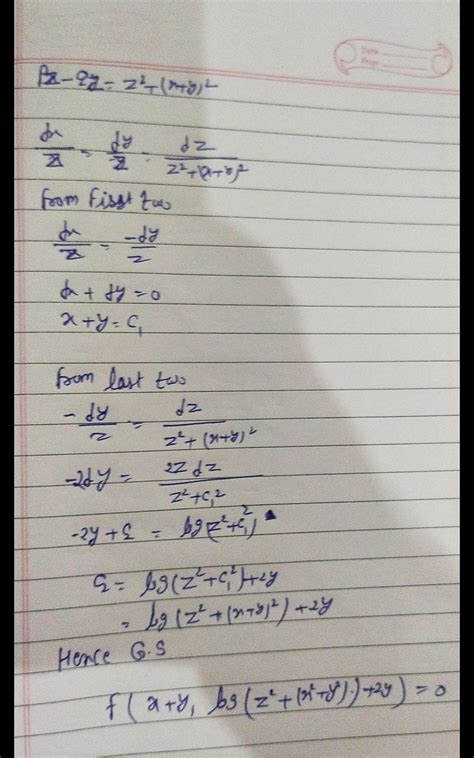 Pz - qz = z² + (x+y)²
dx/z = dy/z = dz/(z²+(x+y)²)
from first two
dx/z = -dy/z
dx + dy = 0
x + y = C₁
from last two
-dy/z = dz/(z² + (x+y)²)
-2dy = 2z dz/(z² + C₁²)
-2y + C₂ = log(z² + C₁²)
C₂ = log(z² + C₁²) + 2y
= log(z² + (x+y)²) + 2y
Hence G.S
f(x+y, log(z² + (x²+y²)) + 2y) = 0